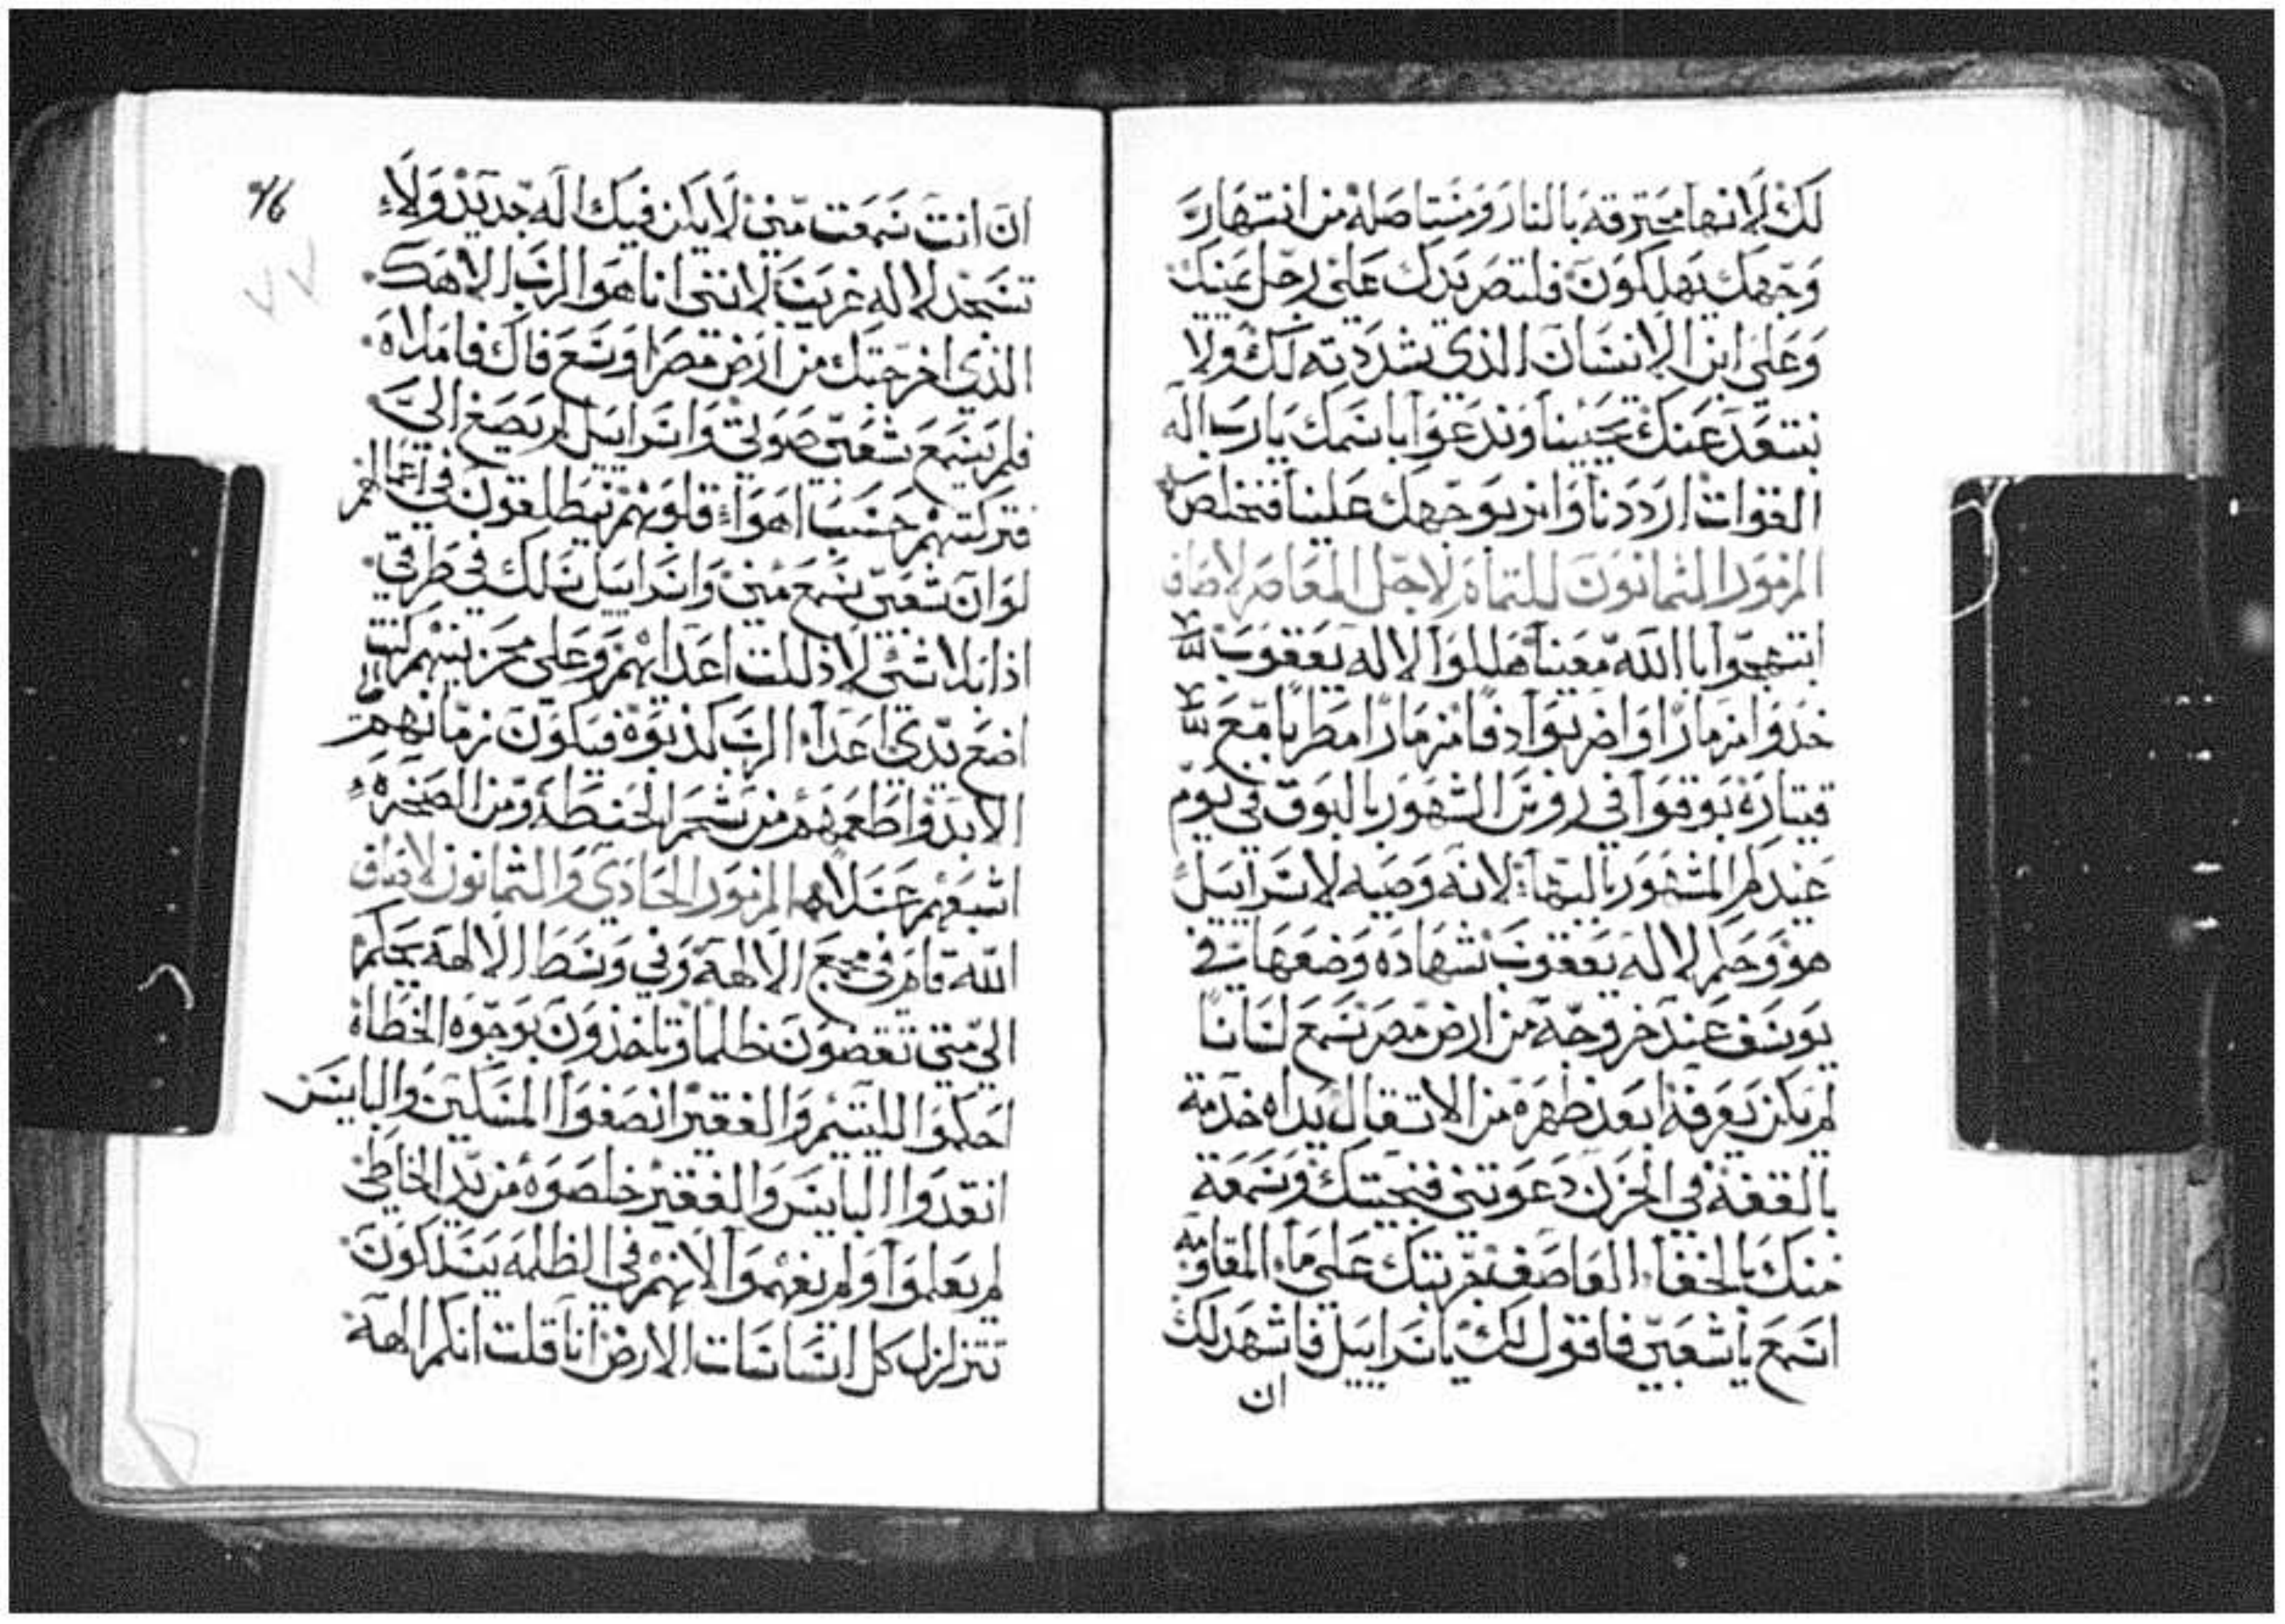 لك لانها محترقه بالنار ومستاصله من انتهار
وجهك يهلكون فلتصر يدك على رجل يمينك
وعلى ابن الانسان الذي شددته لك ولا
نبتعد عنك تحيينا وندعوا باسمك يارب اله
القوات ارددنا وانر بوجهك علينا فنخلص
المزمور الثمانون للتمام لاجل المعاصر لاصاف
ابتهجوا بالله معيننا هللوا لاله يعقوب
خذوا مزمارًا واضربوا دفًا مزمارًا مطربًا مع
قيتاره بوقوا في روس الشهور بالبوق في يوم
عيدكم المشهور بالبهاء لانه وصيه لاسراييل
هو وحكم لاله يعقوب شهاده وضعها في
يوسف عند خروجه من ارض مصر سمع لسانًا
لم يكن يعرفه ابعد ظهره من الاتقال يداه خدمة
بالقفه في الحزن دعوتني فنجيتك وسمعة
منك بالخفاء العاصف جربتك على ماء المقاومه
اسمع يا شعبي فاقول لك يا سراييل فاشهد لك
ان
٧٦
ان انت سمعت مني لا يكن فيك اله جديد ولا
تسجد لاله غريب لانني انا هو الرب الاهك
الذي اخرجتك من ارض مصر اوسع فاك فاملاه
فلم يسمع شعبي صوتي واسراييل لم يصغ الي
فتركتهم حسب اهواء قلوبهم ينطلقون في اعمالهم
لو ان شعبي سمع مني واسراييل سلك في طرقي
اذا بلا شي لاذللت اعدايهم وعلى محزنيهم كنت
اضع يدي اعداء الرب كذبوه فيكون زمانهم
الابد واطعمهم من شحم الحنطه ومن الصخره
اشبعهم عسلا المزمور الحادي والثمانون لاصاف
الله قام في مجمع الالهة وفي وسط الالهه يحكم
الي متي تقضون ظلمًا وتاخذون بوجوه الخطاه
احكموا لليتيم والفقير انصفوا المسكين والبايس
انقدوا البايس والفقير خلصوه من يد الخاطي
لم يعلموا ولم يفهموا لانهم في الظلمه يسلكون
تتزلزل كل اساسات الارض انا قلت انكم الهة